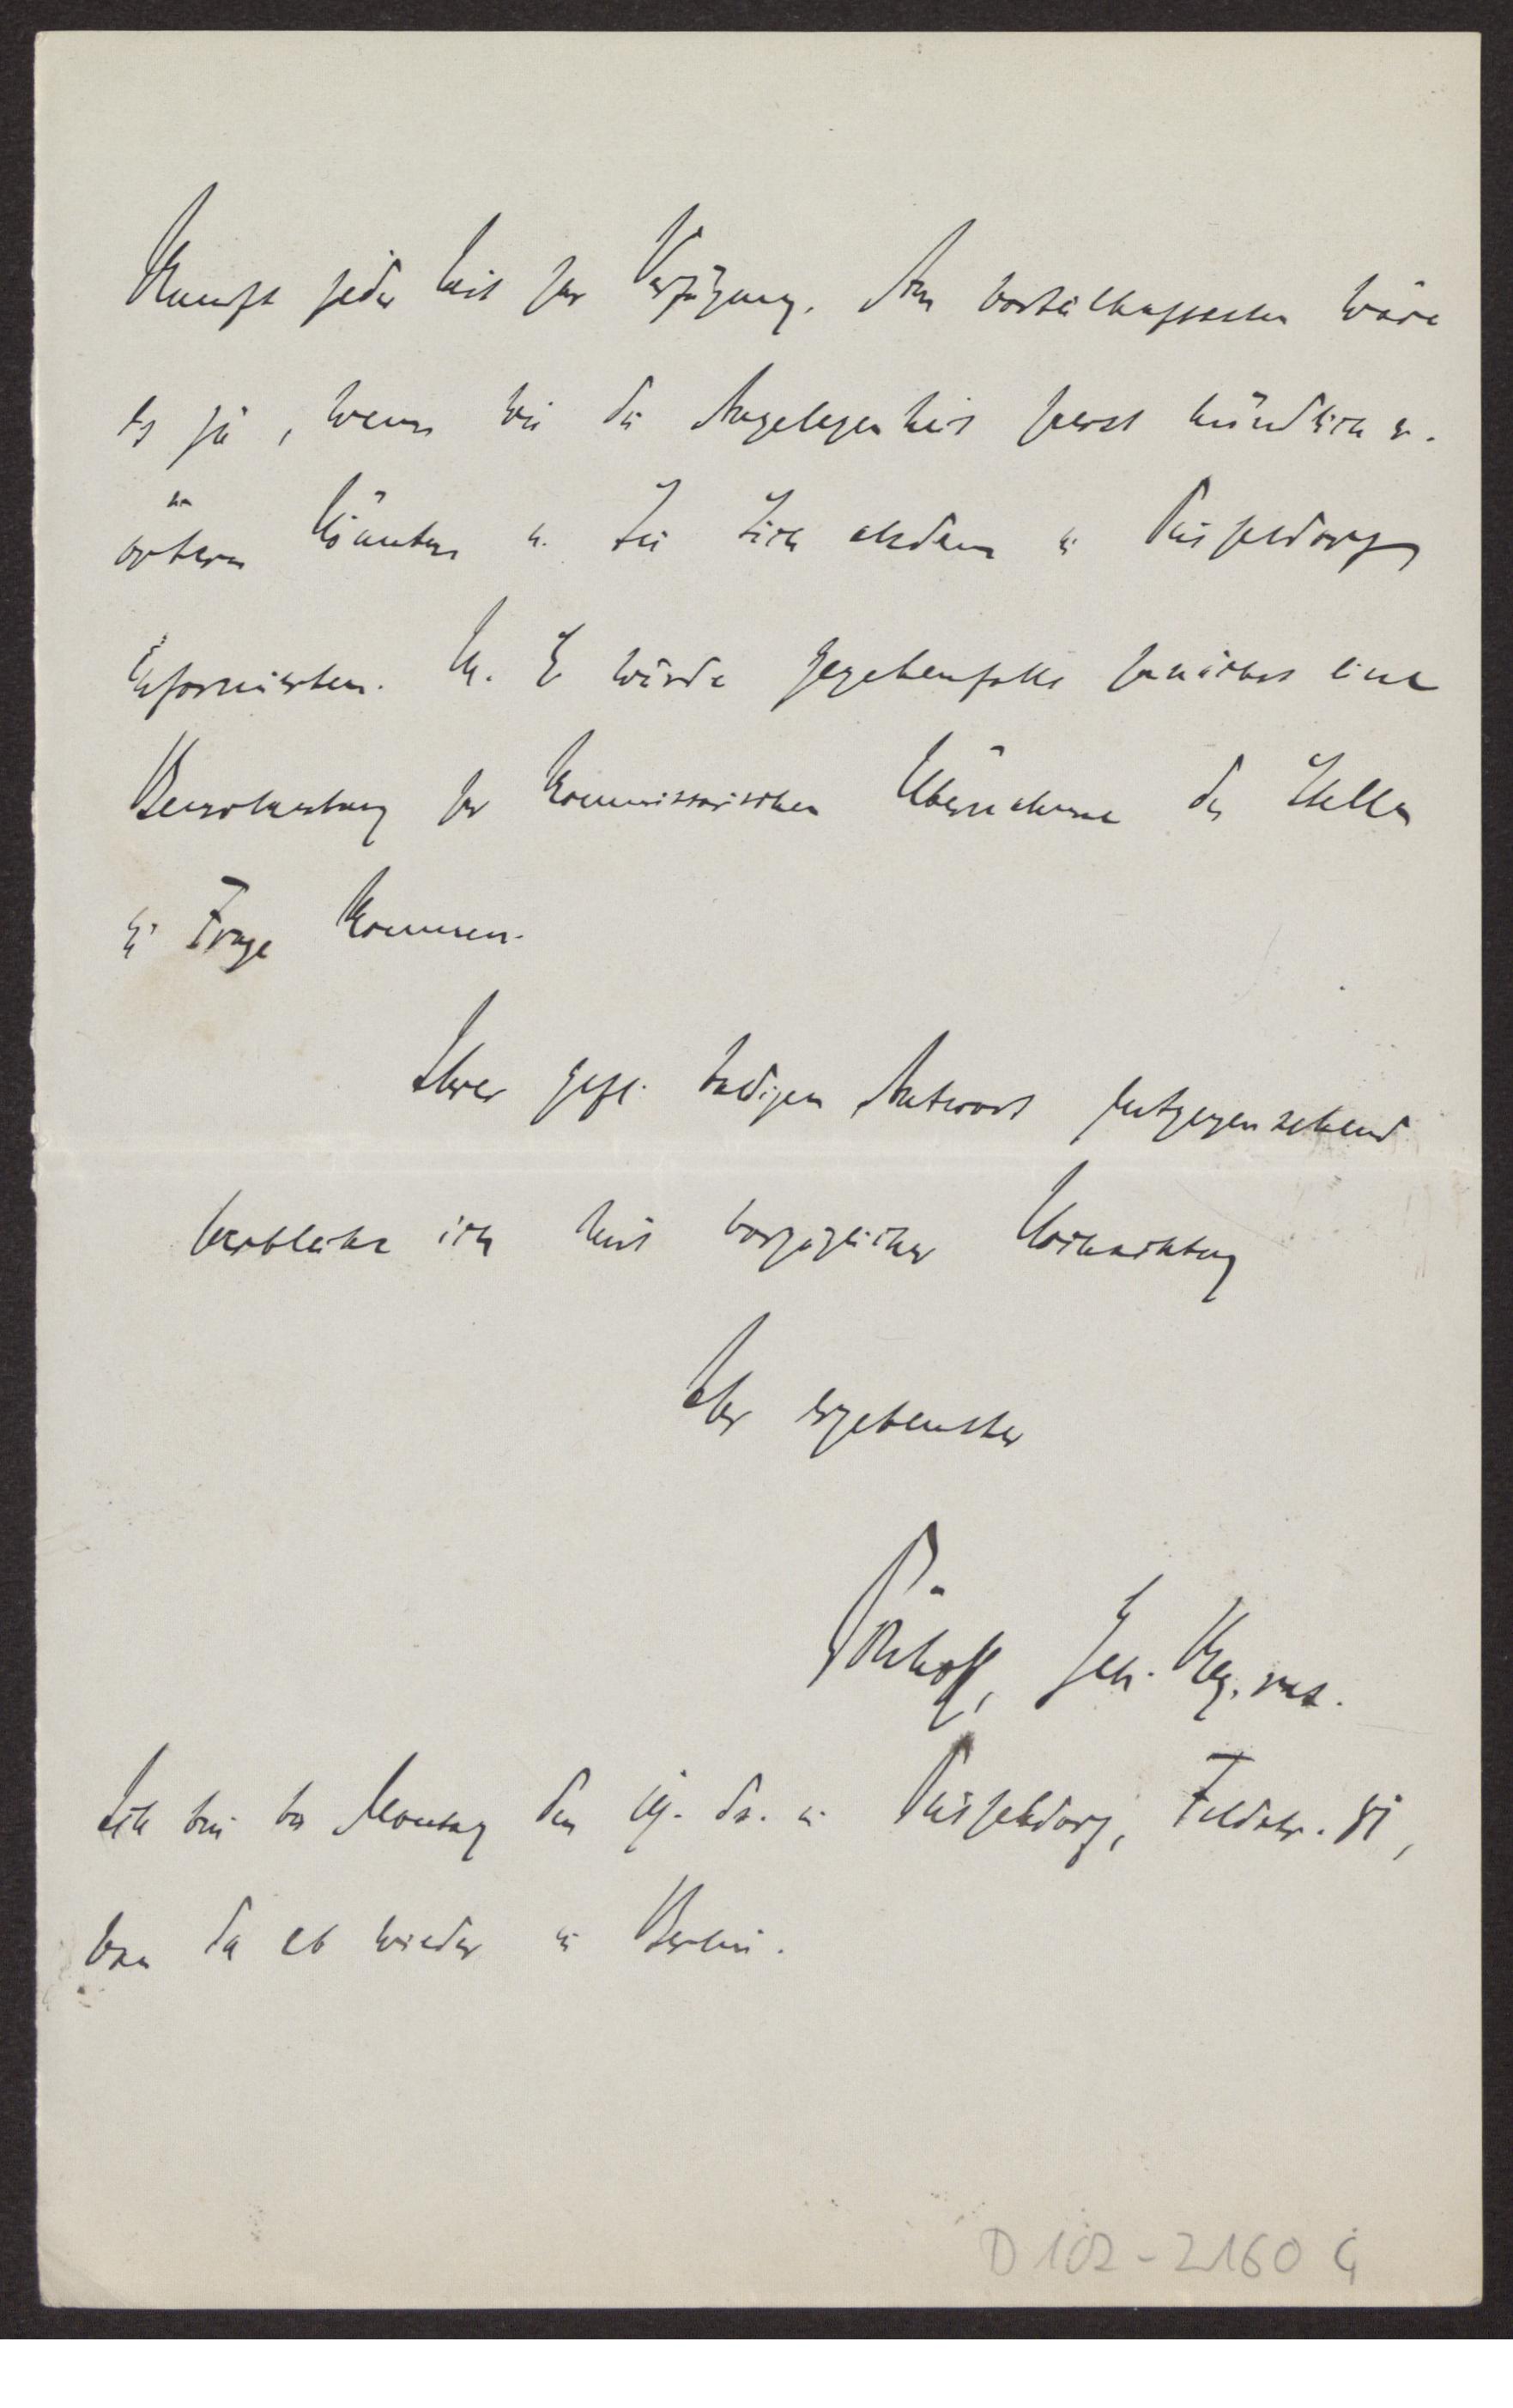 Kunft jeder Zeit zur Verfügung. Am vorteilhaftesten wäre
es ja, wenn wir die Angelegenheit zuerst mündlich er-
örtern könnten u. Sie sich alsdann in Düsseldorf
informierten. M. E. würde gegebenfalls zunächst eine
Beurlaubung zur kommissarischen Übernahme der Stelle
in Frage kommen.
Ihrer gefl. baldigen Antwort entgegensehend
verbleibe ich mit vorzüglicher Hochachtung
Ihr ergebenster
Geh. Reg. rat.
Ich bin bis Montag den 19. ds. in Düsseldorf, Feldstr. 81,
von da ab wieder in Berlin.
D 102-2160 G